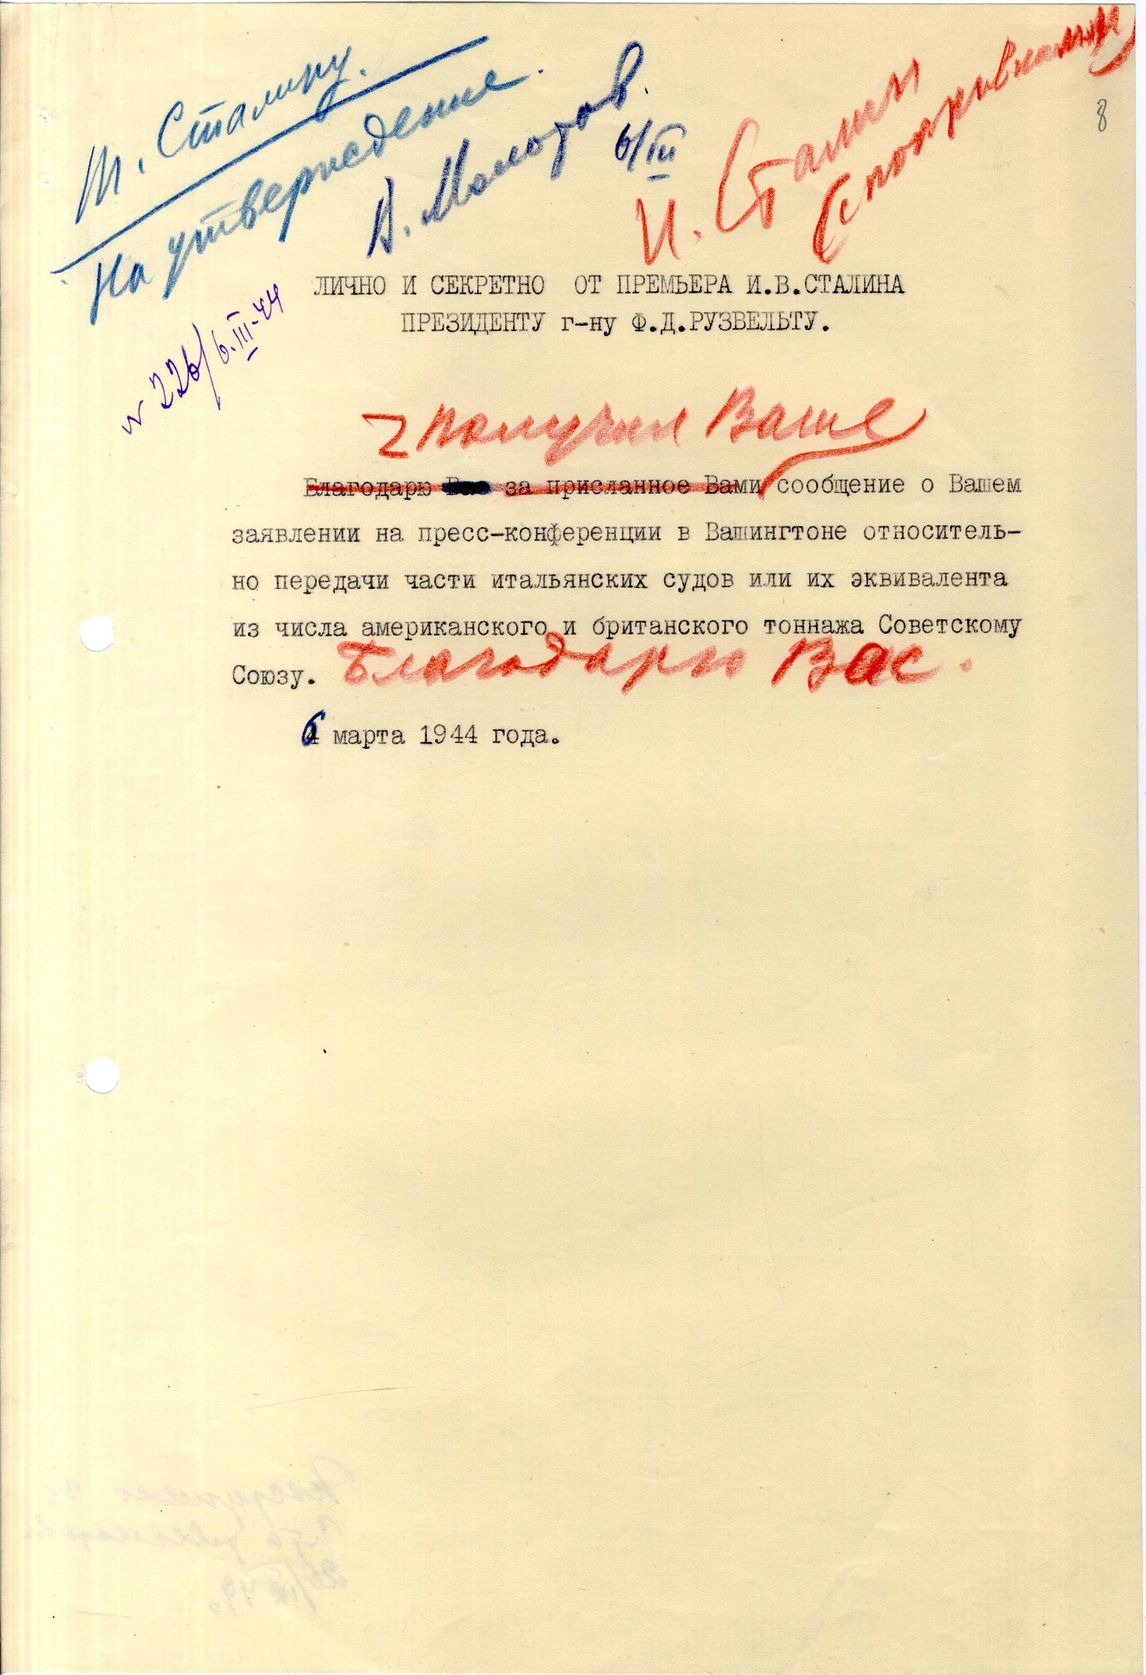 Т. Сталину.
На утверждение.
В. Молотов.
6/III
И. Сталин
(с поправками)
8
N 226/6.III-44
ЛИЧНО И СЕКРЕТНО ОТ ПРЕМЬЕРА И.В.СТАЛИНА
ПРЕЗИДЕНТУ г-ну Ф.Д.РУЗВЕЛЬТУ.
Получил Ваше
Благодарю за присланное Вами сообщение о Вашем
заявлении на пресс-конференции в Вашингтоне относитель-
но передачи части итальянских судов или их эквивалента
из числа американского и британского тоннажа Советскому
Союзу. Благодарю Вас.
6 марта 1944 года.